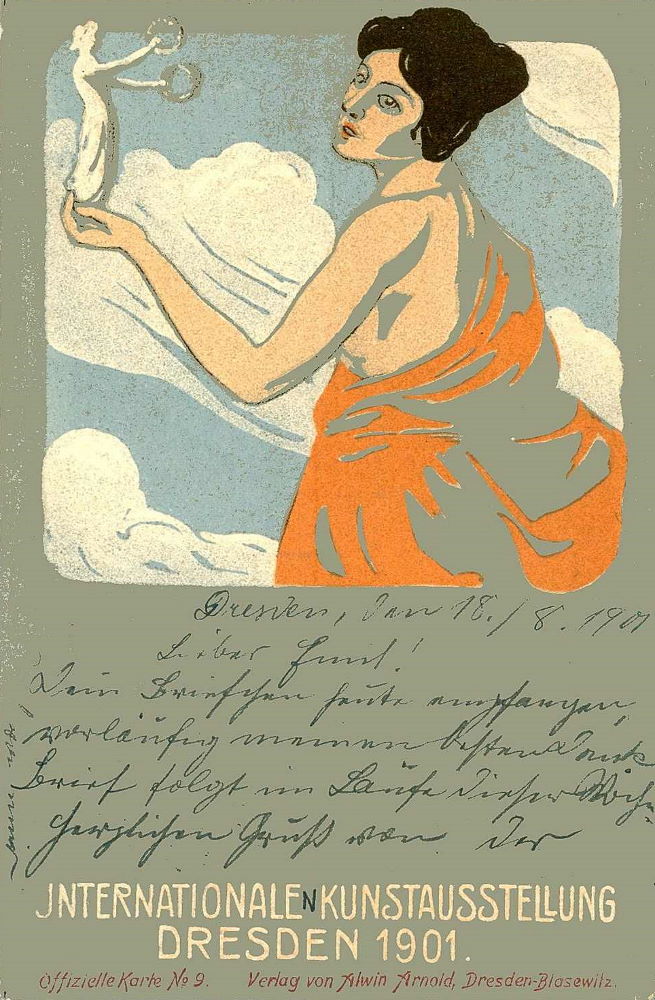 Dresden, den 18./8. 1901
Lieber Emil!
Dein Briefchen heute empfangen,
vorläufig meinen besten Dank
Brief folgt im Laufe dieser Woche
Herzlichen Gruß von Der
JNTERNATIONALEN KUNSTAUSSTELLUNG
DRESDEN 1901.
Offizielle Karte No 9. Verlag von Alwin Arnold, Dresden-Blasewitz.